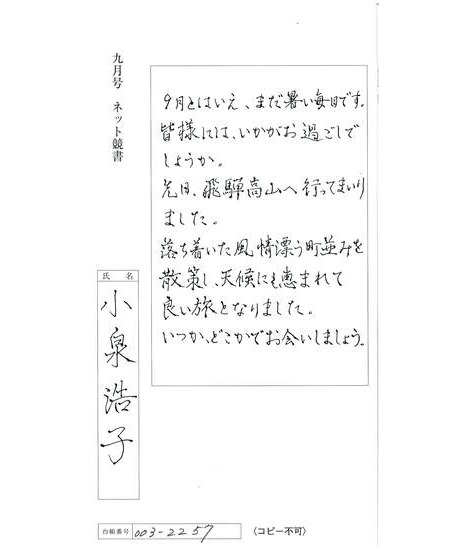 九月号 ネット競書
9月とはいえ、まだ暑い毎日です。
皆様には、いかがお過ごしで
しょうか。
先日、飛騨高山へ行ってまいり
ました。
落ち着いた風情漂う町並みを
散策し、天候にも恵まれて
良い旅となりました。
いつか、どこかでお会いしましょう。
氏名
小泉浩子
台帳番号 003-2257
〈コピー不可〉